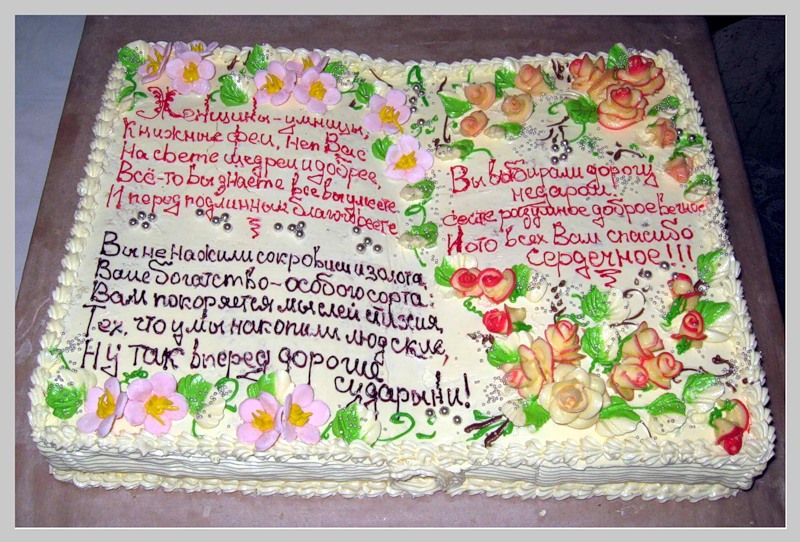 Женщины-умницы,
Книжные феи, Нет Вас
На свете щедрей и добрее,
Всё-то вы знаете всё вы умеете
И перед подлинным благоговеете
Вы не нажили сокровищ и золота,
Ваше богатство-особого сорта:
Вам покоряется мыслей стихия,
Тех, что умы накопили людские,
Ну так вперед дорогие
сударыни!
Вы выбирали дорогу
недаром!
сеете разумное доброе вечное
И ото всех Вам спасибо
сердечное!!!